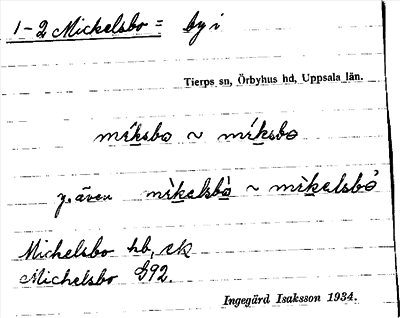 1-2 Mickelsbo = by i
Tierps sn, Örbyhus hd, Uppsala län.
míksbo ~ míksbo
y. även mìkelsbò ~ mìkelsbô
Michelsbo hb, ek
Michelsbo G92.
Ingegärd Isaksson 1934.